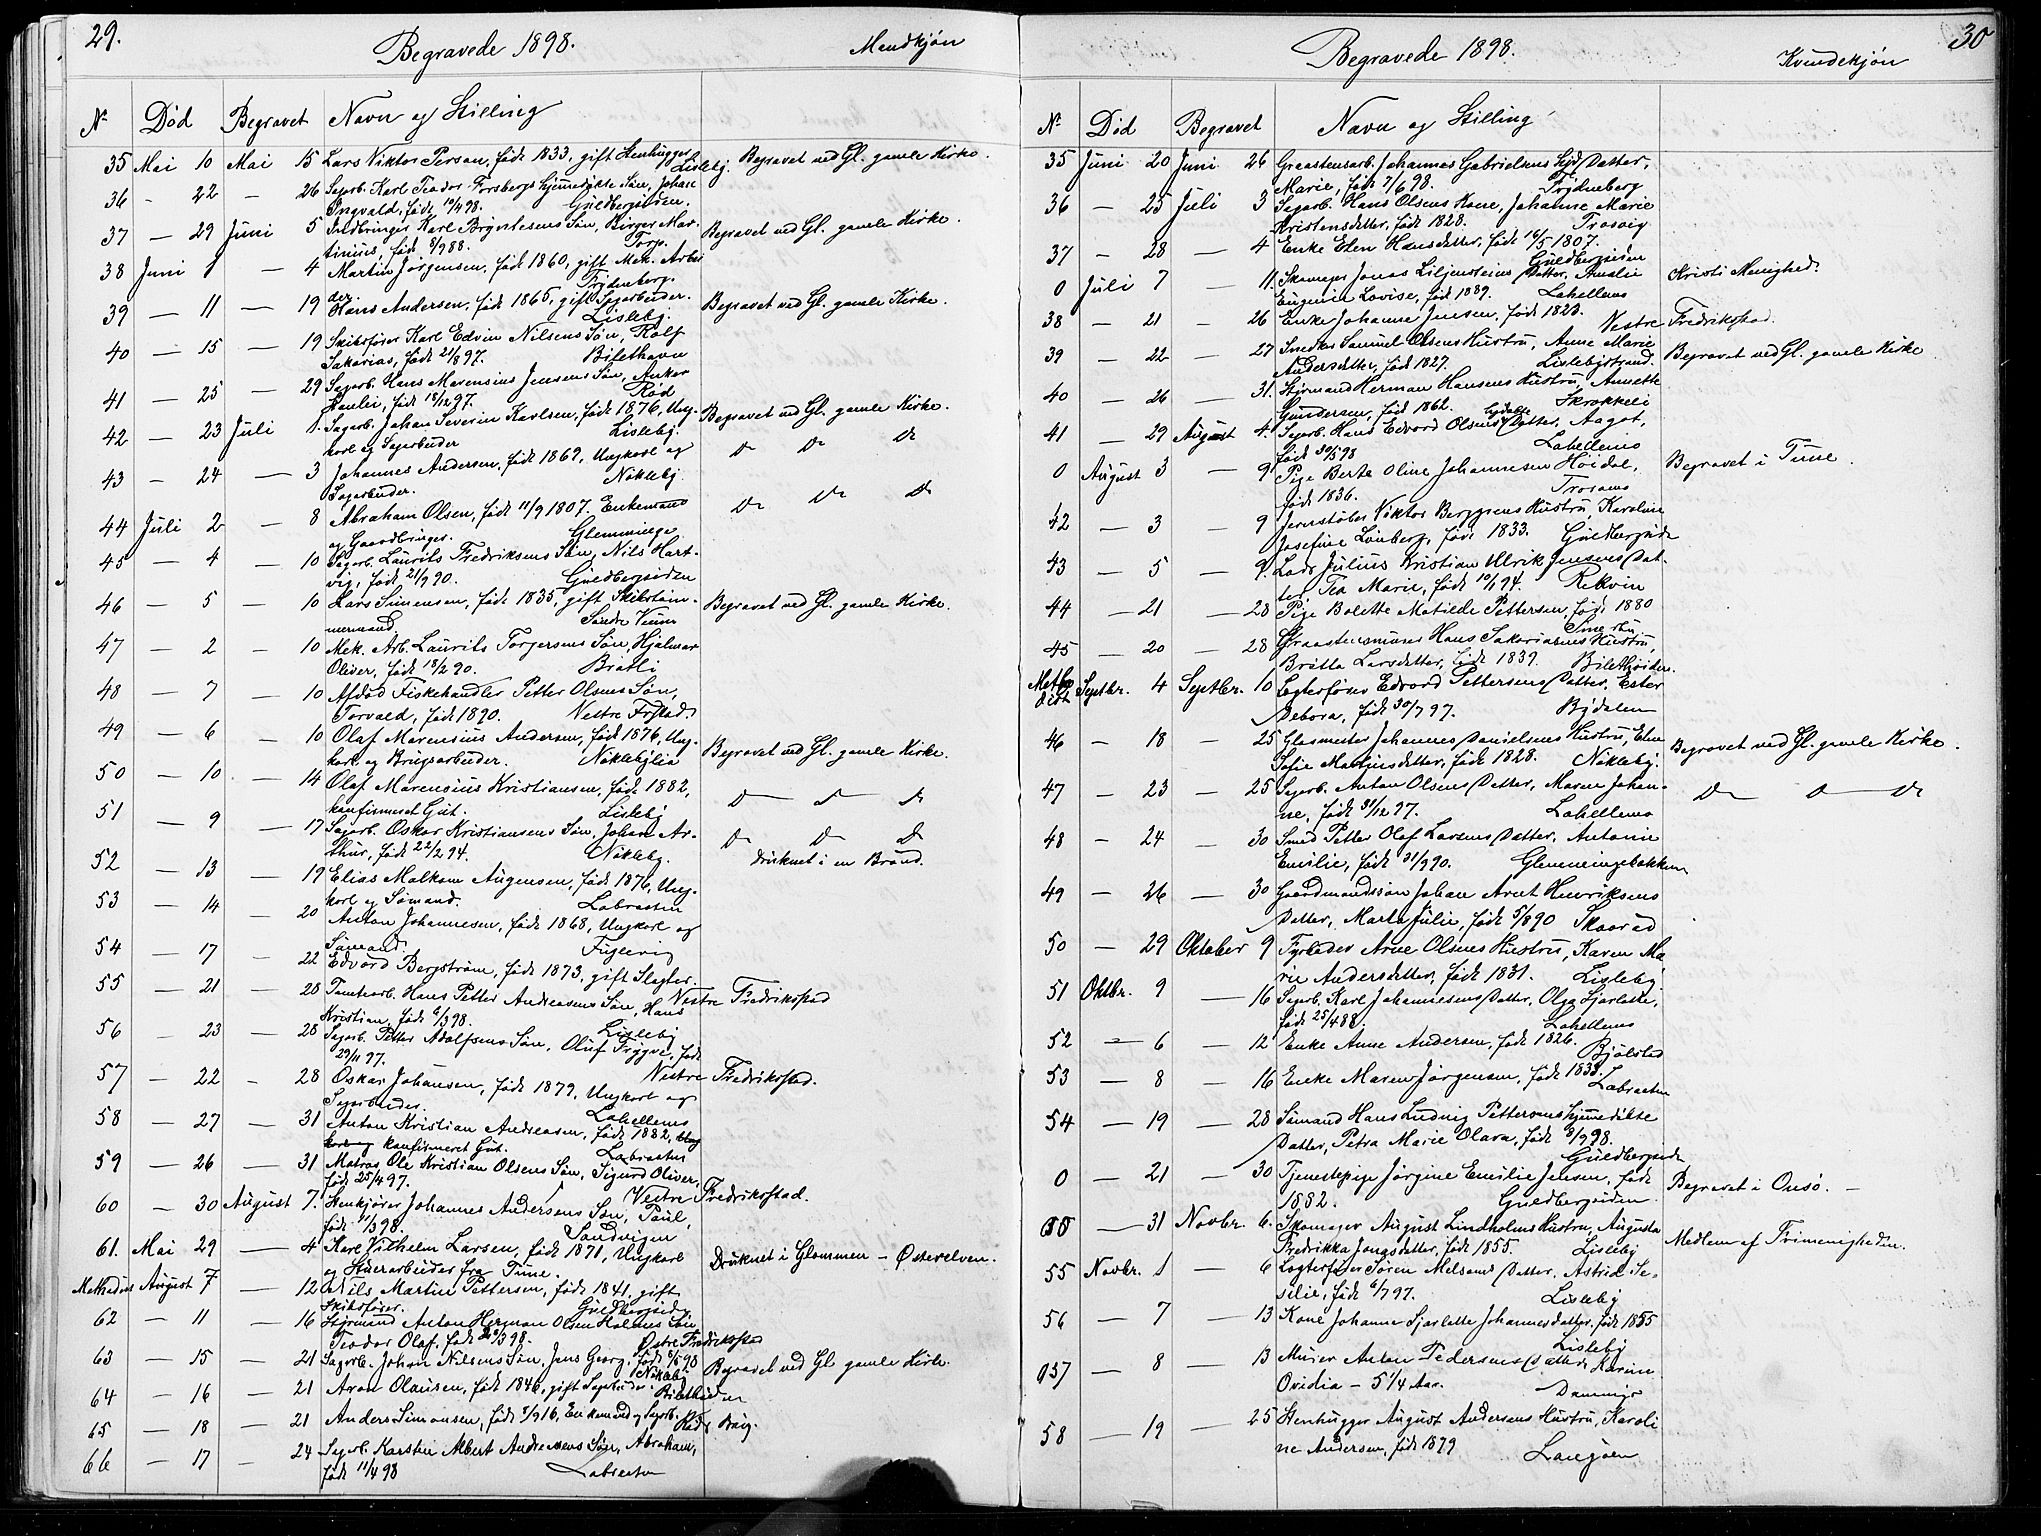 29.
Begravede 1898.
Mandkjøn
No Død Begravet Navn og Stilling
35 Mai 10 Mai 15 Lars Viktor Person, født 1833, gift Stenhugger
Lisleby. Begravet ved Gl. gamle Kirke.
36 - 22 - 26 Sagarb. Karl Teodor Forsbergs hjemmedøbte Søn, Johan
Ingvald, født 10/4 98. Guldbergsiden.
37 - 29 Juni 5 Indbringer Karl Søn, Birger Mar-
tinius, født 8/9 88. Torp. Begravet ved Gl. gamle Kirke.
38 Juni 1 - 4 Martin Jørgensen, født 1860, gift Mek. Arbei
der. Trydenberg
39 - 11 - 19 Hans Andersen, født 1865, gift Sagarbeider.
Lisleby. Begravet ved Gl. gamle Kirke.
40 - 15 - 19 Skibsfører Karl Edvin Nilsens Søn, Rolf
Sakarias, født 21/8 97.
41 - 25 - 29 Sagarb. Hans Marensius Jensens Søn, Anker
født 18/12 97. Rød
42 - 23 Juli 1. Sagarb. Johan Severin Karlsen, født 1876, Ung-
karl og Sagarbeider Lisleby. Begravet ved Gl. gamle Kirke.
43 - 24 - 3 Johannes Andersen, født 1869, Ungkarl og
Sagarbeider. Nøkleby. Do Do Do
44 Juli 2 - 8 Abraham Olsen, født 11/9 1807. Enkemand
og Gaardbruger. Glemminge Do Do Do
45 - 4 - 10 Sagarb. Laurits Fredriksens Søn, Nils Hart-
vig, født 21/9 90. Guldbergsiden
46 - 5 - 10 Lars Simensen, født 1835, gift Skibstøm-
mermand Søndre Begravet ved Gl. gamle Kirke.
47 - 2 - 10 Mek. Arb. Laurits Torgersens Søn, Hjalmar
Oliver, født 18/2 90. Bratli
48 - 7 - 10 Afdød Fiskehandler Petter Olsens Søn,
Torvald, født 1890. Vestre Frstad.
49 - 6 - 10 Olaf Marensius Andersen, født 1876, Ung-
karl og Brugsarbeider. Nøklebylia Begravet ved Gl. gamle Kirke.
50 - 10 - 14 Olaf Marensius Kristiansen, født 1882,
konfirmeret Gut. Lisleby Do Do Do
51 - 9 - 17 Sagarb. Oskar Kristiansens Søn, Johan Ar-
thur, født 22/2 94. Nøkleby. Do Do Do
druknet i en Brønd.
52 - 13 - 19 Elias Malkom Augensen, født 1876, Ung-
karl og Sømand. Labraaten
53 - 14 - 20 Anton Johannesen, født 1868, Ungkarl og
Sømand. Fuglevig
54 - 17 - 22 Edvard Bergstrøm, født 1873, gift Slagter.
Vestre Fredriksstad
55 - 21 - 28 Tomtearb. Hans Petter Andreasens Søn, Hans
Kristian, født 6/3 98. Lisleby
56 - 23 - 28 Sagarb. Petter Adolfsens Søn, Oluf Trygve, født
29/11 97. Vestre Fredriksstad.
57 - 22 - 28 Oskar Johansen, født 1879, Ungkarl og
Sagarbeider. Lahellems
58 - 27 - 31 Anton Kristian Andreasen, født 1882, Ung
karl og konfirmeret Gut. Labraaten
59 - 26 - 31 Matros Ole Kristian Olsens Søn, Sigurd Oliver,
født 25/4 97. Vestre Fredriksstad.
60 - 30 August 7. Stenkjører Johannes Andersens Søn, Paul,
født 11/3 98. Sandvigen
61. Mai 29 - 4 Karl Vilhelm Larsen, født 1871, Ungkarl
og Stuerarbeider fra Tune. Druknet i Glommen - Østerelven.
Methodist August 7 - 12 Nils Martin Pettersen, født 1841, gift
Skibsfører. Guldbergsiden
62 - 11 - 16 Styrmand Anton Herman Olsen Holmes Søn
Teodor Olaf, født 98. Østre Fredriksstad
63 - 15 - 21 Sagarb. Johan Nilsens Søn, Jens Georg, født 6/5 98
Nøkleby Begravet ved Gl. gamle Kirke.
64 - 16 - 21 Aron Olausen, født 1846, gift Sagarbeider.
65 - 18 - 21 Anders Simonsen, født 8/9 16, Enkemand og Sagarb.
66 - 17 - 24 Sagarb. Karsten Albert Andreasens Søn, Abraham,
født 11/4 98 Labraaten
30
Begravede 1898.
Kvindekjøn
No Død Begravet Navn og Stilling
35 Juni 20 Juni 26 Graastensarb. Johannes Gabrielsens Datter,
Marie, født 7/6 98. Trydenberg
36 - 25 Juli 3 Sagarb. Hans Olsens Kone, Johanne Marie
Kristensdatter, født 1828. Trosvig
37 - 28 - 4 Enke Elen Hansdatter, født 16/5 1807.
Guldbergsiden
0 Juli 7 - 11. Skomager Jonas Liljensteins Datter, Amalie
Eugenie Lovise, født 1889. Lahellems Kristi Menighed.
38 - 21 - 26 Enke Johanne Jensen, født 1823.
Vestre Fredriksstad.
39 - 22 - 27 Snedker Samuel Olsens Hustru, Anne Marie
Andersdatter, født 1827. Lislebystrand. Begravet ved Gl. gamle Kirke
40 - 26 - 31. Styrmand Herman Hansens Hustru, Annette
Gundersen, født 1862. Skrokkeli
41 - 29 August 4. Sagarb. Hans Edvard Olsens Datter, Aagot,
født 30/5 98 Lahellems
0 August 3 - 9 Pige Berte Oline Johannesen Høidal,
født 1836. Begravet i Tune.
42 - 3 - 9 Jernstøber Viktor Berggrens Hustru, Karoline
Josefine Lönberg, født 1833. Guldbergside
43 - 5 - 9. Lods Julius Kristian Ulrik Jensens Dat-
ter Tea Marie, født 10/1 94. Rekvin
44 - 21 - 28 Pige Bolette Matilde Pettersen, født 1880
45 - 20 - 28 Graastensmurer Hans Sakariasens Hustru,
Britta Larsdatter, født 1839.
Metho
dist Septbr. 4 Septbr. 10 Logterfører Edvard Pettersens Datter, Ester
Debora, født 30/7 97. Bydalen
46 - 18 - 25 Glasmester Johannes Danielsens Hustru, Elen
Sofie Martinsdatter, født 1828. Nøkleby. Begravet ved Gl. gamle Kirke.
47 - 23 - 25 Sagarb. Anton Olsens Datter, Maren Johan-
ne, født 31/12 97. Lahellems Do Do Do
48 - 24 - 30 Smed Petter Olaf Larsens Datter, Antonie
Emilie, født 21/9 90. Glemmingebakken
49 - 26 - 30 Gaardmandssøn Johan Arnt Henriksens
Datter, Marta Julie, født 5/8 90 Skaarad
50 - 29 Oktober 9 Fyrbøder Arne Olsens Hustru, Karen Ma
rie Andersdatter, født 1831. Lisleby
51 Oktbr. 9 - 16 Sagarb. Karl Johannesens Datter, Olga Sjarlotte,
født 25/4 88. Lahellems
52 - 6 - 12 Enke Anne Andersen, født 1826.
Bjølstad
53 - 8 - 16 Enke Maren Jørgensen, født 1833.
Labraaten
54 - 19 - 28 Sømand Hans Ludvig Pettersens hjemmedøbte
Datter, Petra Marie Olava, født 8/9 98.
Guldbergside
0 - 21 - 30 Tjenestepige Jørgine Emilie Jensen, født
1882. Guldbergsiden Begravet i Onsø. -
- 31 Novbr. 6. Skomager August Lindholms Hustru, Augusta
Fredrikka Jonasdatter, født 1855. Lisleby Medlem af Frimenigheden.
55 Novbr. 1 - 6 Logterfører Søren Melsoms Datter, Astrid Se-
silie, født 6/7 97. Lisleby
56 - 7 - 13 Kone Johanne Sjarlotte Johannesdatter, født 1855
Lisleby
57 - 8 - 13 Murer Anton Pedersens Datter Karine
Ovidia - 5 1/4 Aar. Dammyr
58 - 19 - 25 Stenhugger August Andersens Hustru, Karoli
ne Andersen, født 1879